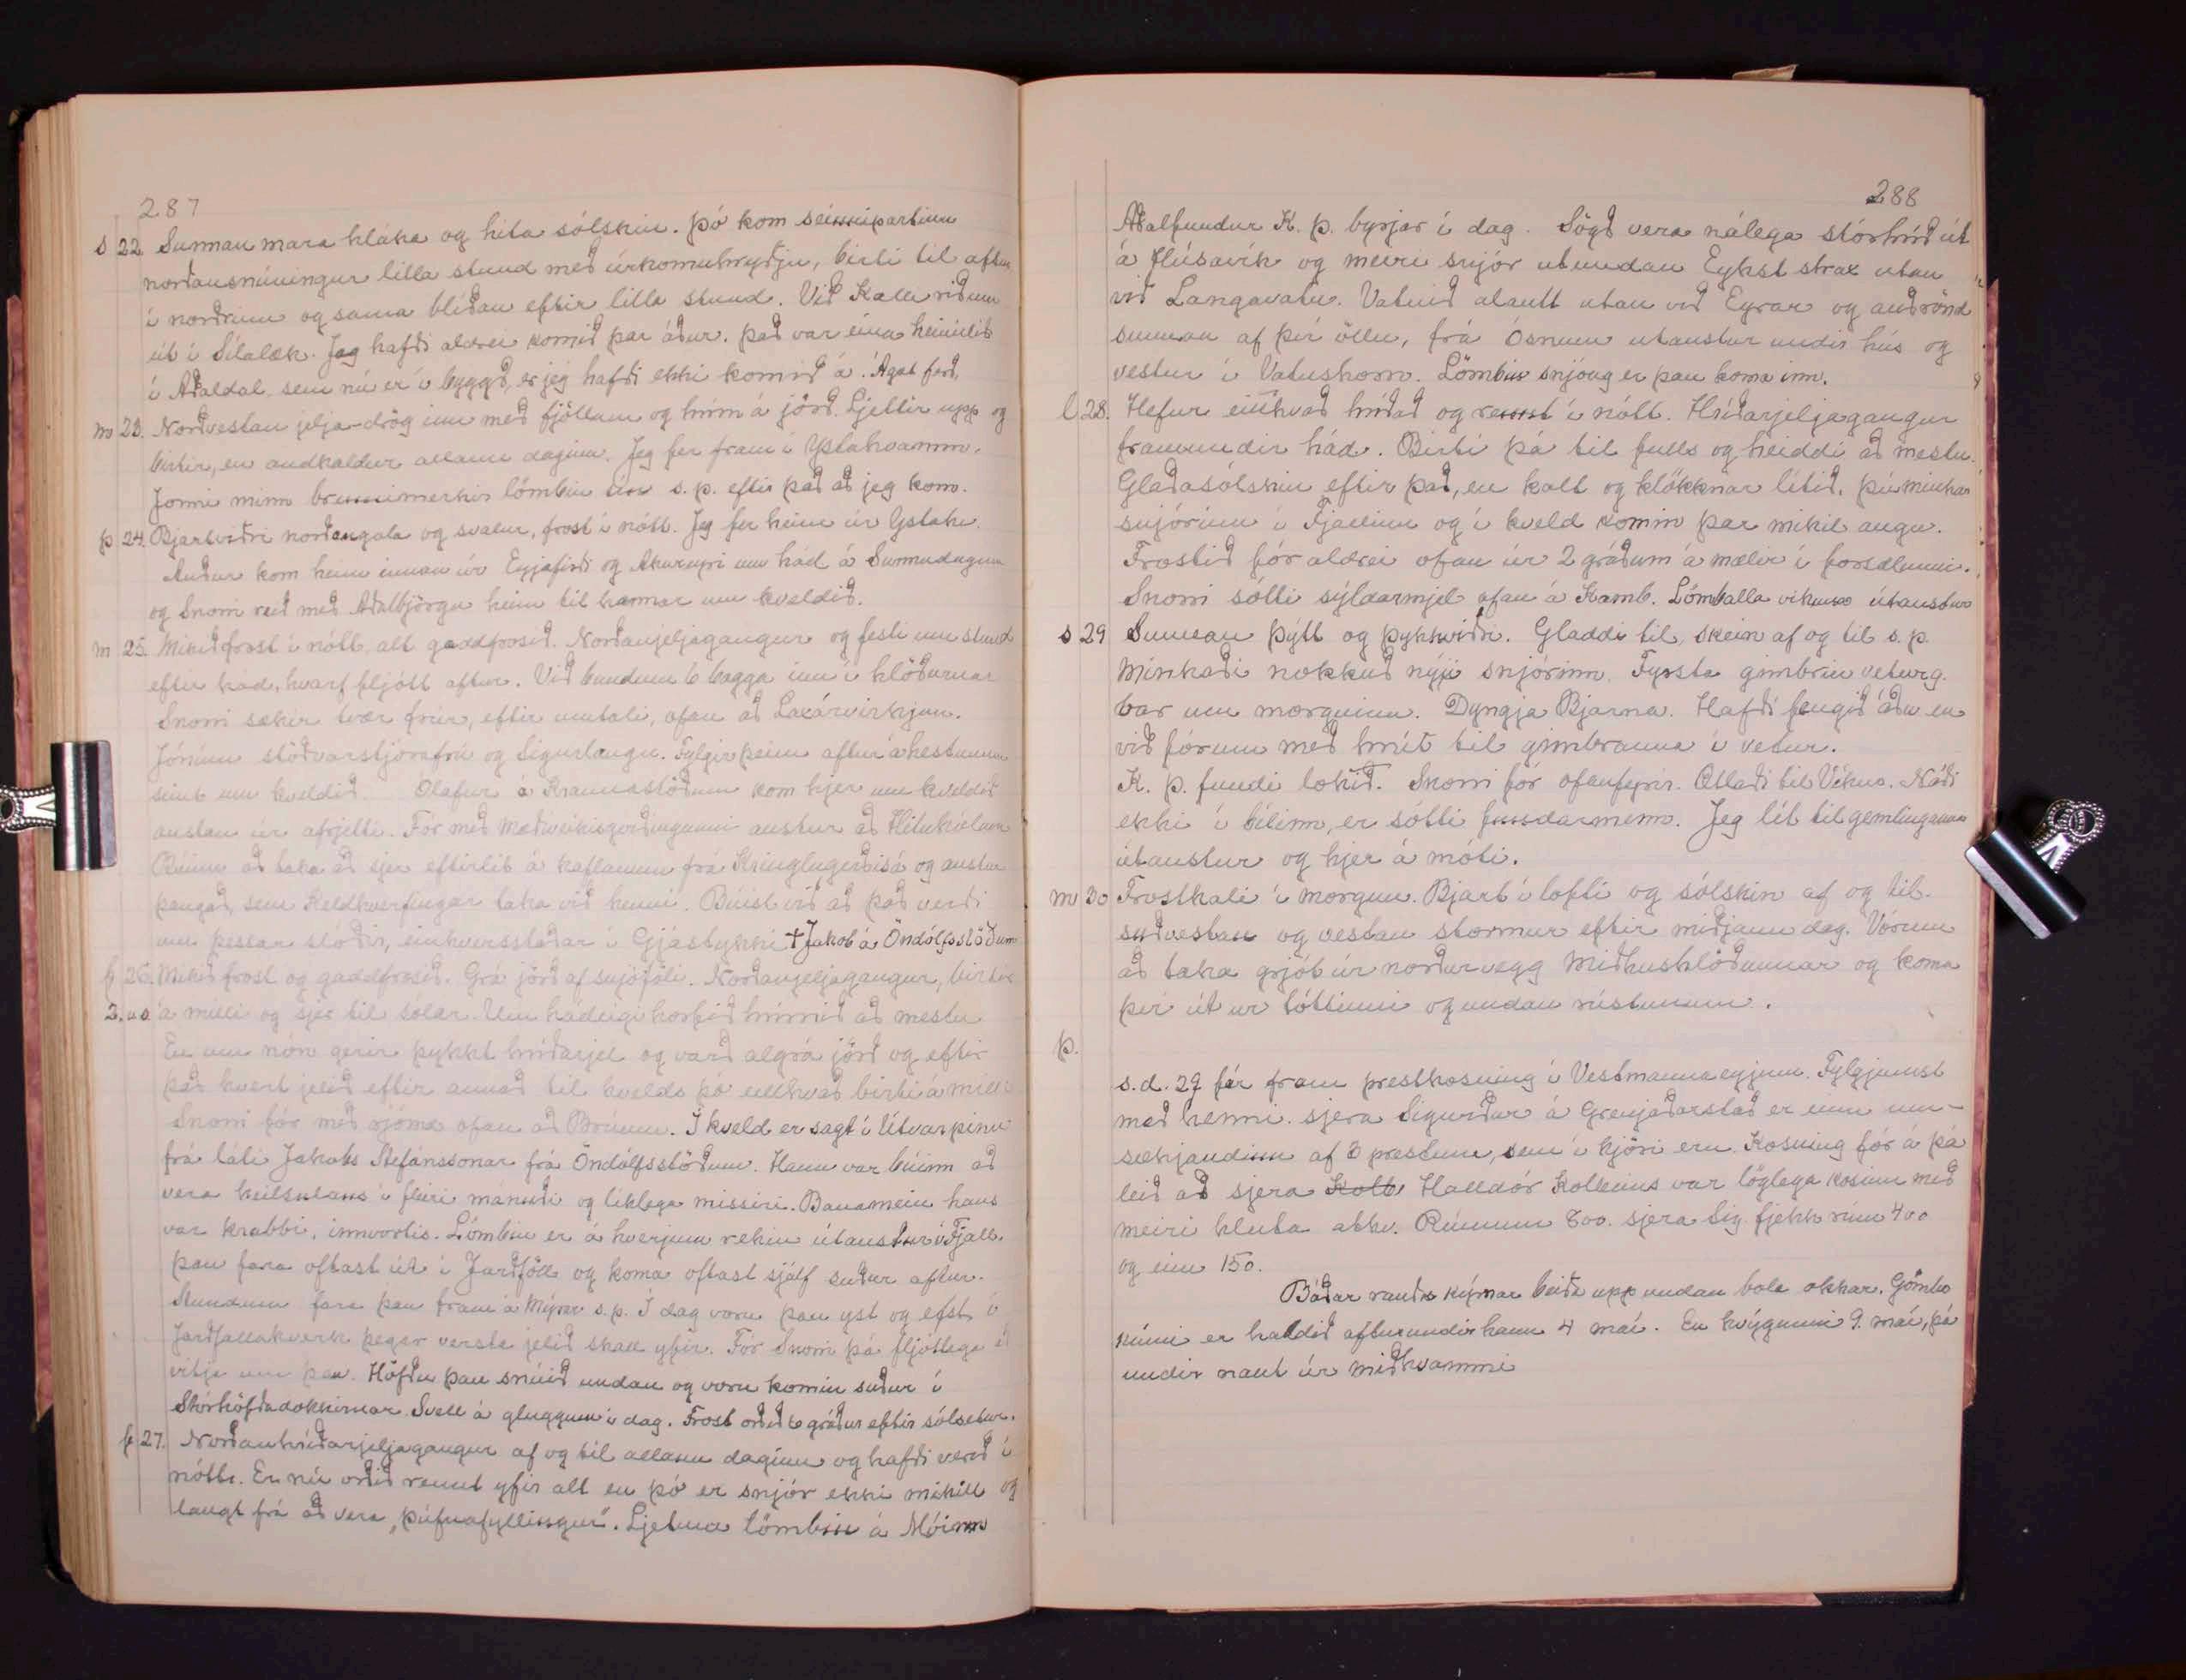 287
s 22. Sunnan mara hláka og hita sólskin. Þó kom seinnipartinn
norðansnúningur litla stund með úrkomuhryðju, birti til aftur
í norðrinu og sama blíðan eftir litla stund. Við Kalli riðum
út í Sílalæk. Jeg hafði aldrei komið þar áður. Það var eina heimilið
í Aðaldal sem nú er í byggð, er jeg hafði ekki komið á. Ágæt ferð.
m 23. Norðvestan jelja-drög inn með fjöllum og hrím á jörð. Ljettir upp og
birtir, en andkaldur allann daginn. Jeg fer fram í Ystahvamm.
Jonni minn brennimerkir lömbin sín s.p. eftir það að jeg kom.
þ 24. Bjartviðri norðangola og svalur, frost í nótt. Jeg fer heim úr Ystahv.
Auður kom heim innan úr Eyjafirði og Akureyri um hád á Sunnudaginn
og Snorri reið með Aðalbjörgu heim til hennar um kveldið.
m 25. Mikið frost í nótt, alt gaddfrosið. Norðanjeljagangur og festi um stund
eftir hád, hvarf fljótt aftur. Við bundum 6 bagga inn í hlöðurnar
Snorri sækir tvær frúr, eftir umtali, ofan að Laxárvirkjun.
Jónínu stöðvarstjórafrú og Sigurlaugu. Fylgir þeim aftur á hestunum
seint um kveldið. Ólafur á Kraunastöðum kom hjer um kveldið
austan úr afrjetti. Fór með Mæðiveikisgirðingunni austur að
að taka að sjer eftirlit á kaflanum frá Kringlugerðisá og austur
þangað, sem Keldhverfingar taka við henni. Búist við að það verði
um þessar slóðir, einhversstaðar í Gjástykki † Jakob á Öndólfsstöðum
f 26. Mikið frost og gaddfrosið. Grá jörð af snjóföli. Norðanjeljagangur, birtir
á milli og sjer til sólar. Um hádeigi horfið hrímið að mestu
En um nón gerir þykkt hríðarjel og varð algrá jörð og eftir
það hvert jelið eftir annað til kvelds þó eitthvað birti á milli
Snorri fór með rjóma ofan að Brúum. Í kveld er sagt í Útvarpinu
frá láti Jakobs Stefánssonar frá Öndólfsstöðum. Hann var búinn að
vera heilsulaus í fleiri mánuði og líklega missiri. Banamein hans
var krabbi, innvortis. Lömbin er á hverjum rekin útaustur í Fjall.
Þau fara oftast út í Jarðföll og koma oftast sjálf suður aftur.
Stundum fara þau fram á Mýrar s.p. Í dag voru þau yst og efst í
Jarðfallakverk þegar versta jelið skall yfir. Fór Snorri þá fljótlega að
vitja um þau. Höfðu þau snúið undan og voru komin suður í
Stórhöfðadokkirnar. Svell á gluggum í dag. Frost orðið 6 gráður eftir sólsetur.
f 27. Norðanhríðarjeljagangur af og til allann daginn og hafði verið í
nótt. Er nú orðið rennt yfir alt en þó er snjór ekki mikill og
langt frá að vera „þúfnafyllingur". Ljetum lömbin á Móinn
288
Aðalfundur K. Þ. byrjar í dag. Sögð vera nálega stórhríð út
á Húsavík og meiri snjór utundan Eykst strax utan
við Langavatn. Vatnið alautt utan við Eyrar og auðrönd
sunnan af því öllu, frá Ósnum utaustur undir hús og
vestur í Vatnshorn. Lömbin snjóug er þau koma inn.
l 28. Hefur eitthvað hríðað og rennt í nótt. Hríðarjeljagangur
framundir hád. Birti þá til fulls og heiddi að mestu.
Glaðasólskin eftir það, en kalt og klökknar lítið. Þó minkar
snjórinn í Fjallinu og í kveld komin þar mikil auðn.
Frostið fór aldrei ofan úr 2 gráðum á mælir í forsælunni.
Snorri sótti síldarmjel ofan á Kamb. Lömballa útaustur
s 29 Sunnan þýtt og þykkviðri. Gladdi til, skein af og til s.p.
Minkaði nokkuð nýji snjórinn. Fyrsta gimbrin veturg.
bar um morguninn. Dyngja Bjarna. Hafði fengið áður en
við fórum með hrút til gimbranna í vetur.
K. Þ. fundi lokið. Snorri fór ofanfyrir. Ætlaði til Víkur. Náði
ekki í bílinn, er sótti fundarmenn. Jeg lít til gemlinganna
útaustur og hjer á móti.
m 30 Frostkali í morgun. Bjart í lofti og sólskin af og til.
suðvestan og vestan stormur eftir miðjann dag. Vórum
að taka grjót úr norðurvegg Miðhúshlöðunnar og koma
því út úr tóttinni og undan rústunum.
þ.
s.d. 29 fór fram prestkosning í Vestmannaeyjum. Fylgjumst
með henni. sjera Sigurður á Grenjaðarstað er einn um-
sækjandinn af 3 prestum, sem í kjöri eru. Kosning fór á þá
leið að sjera Kolb Halldór Kolbeins var löglega kosinn með
meiri hluta atkv. Rúmum 800. sjera Sig. fjekk rúm 400
og einn 150.
Báðar rauðu kýrnar beiða upp undan bola okkar. Gömlu
kúnni er haldið afturundir hann 4 maí. En kvígunni 9. maí, þá
undir naut úr miðhvammi